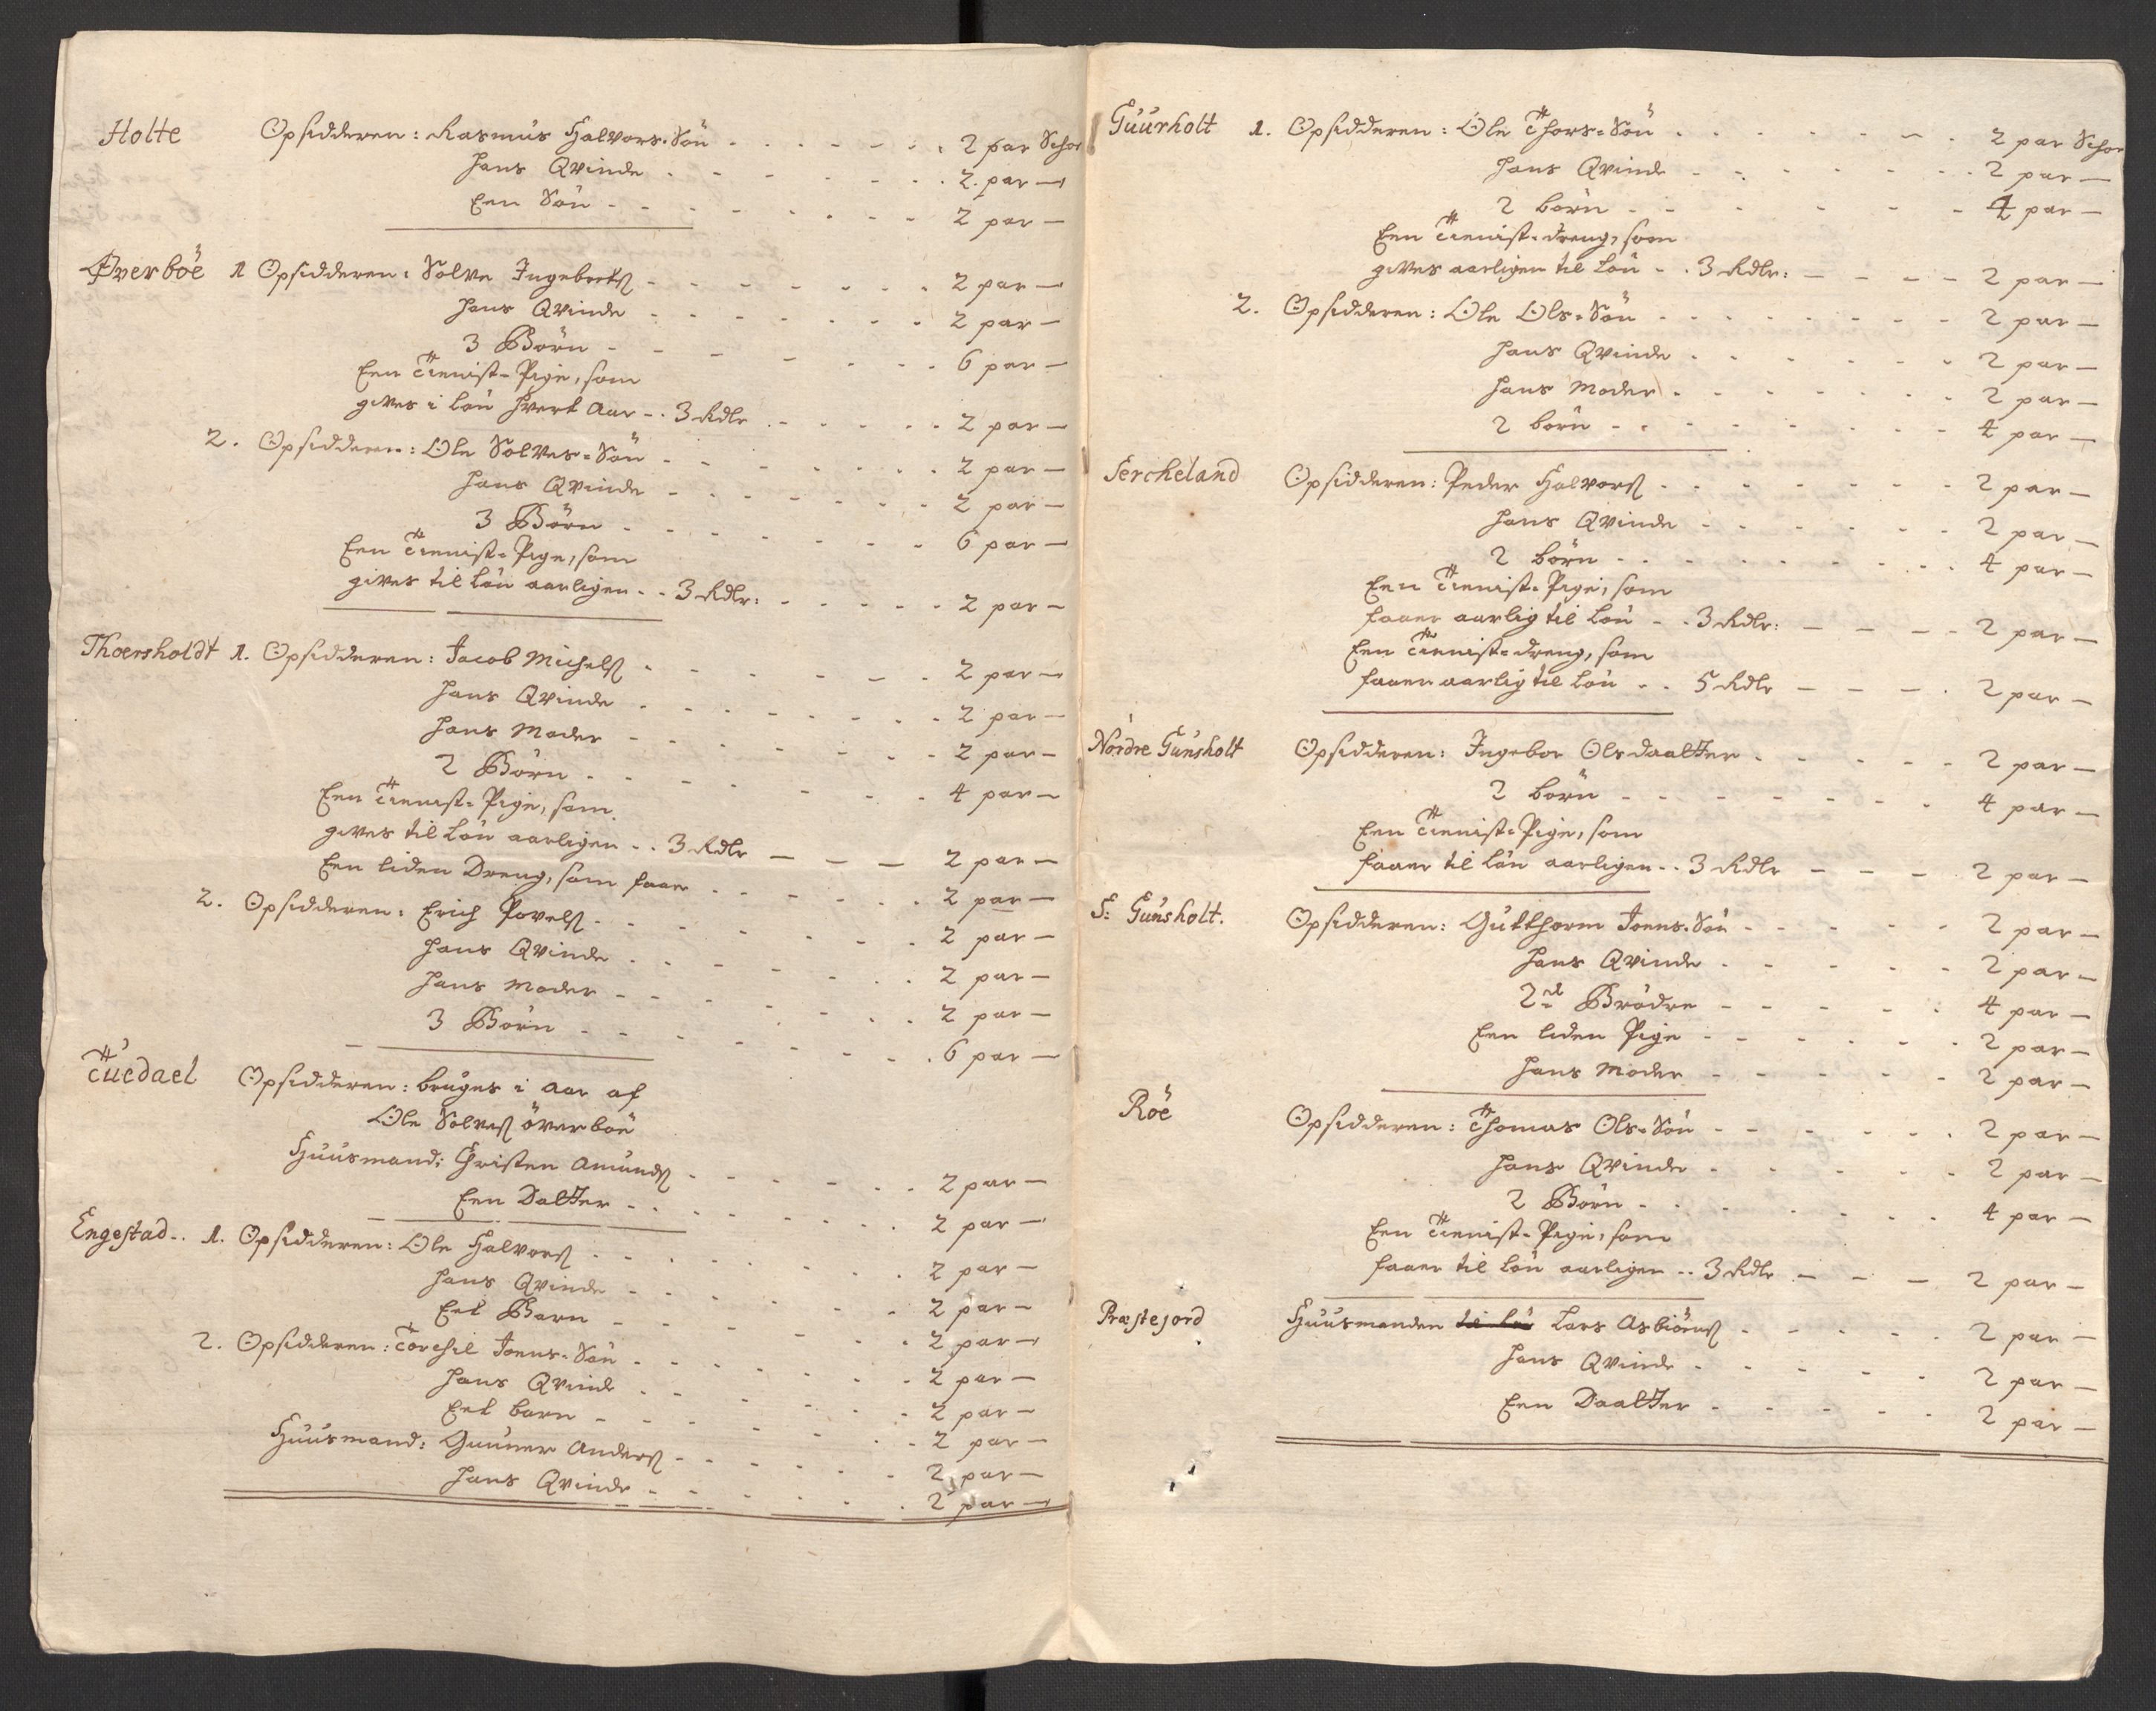 Holte Opsidderen: Rasmus Halvors-Sön - - - - - - 2 par Schoe
Hans Qvinde - - - - - - - 2 par —
Een Sön - - - - - - - - 2 par —
Överböe 1 Opsidderen: Solve Ingebretß - - - - - - - 2 par —
Hans Qvinde - - - - - - - 2 par —
3 Börn - - - - - - - 6 par —
Een Tienist-Pige, som
gives i Lön hvert Aar - . 3 Rdlr - - - - - 2 par —
2. Opsidderen: Ole Solves-Sön - - - - - - - 2 par —
Hans Qvinde - - - - - - - 2 par —
3 Börn - - - - - - - 6 par —
Een Tienist-Pige, som
gives til Lön aarligen - - 3 Rdlr: - - - - - 2 par —
Thoersholdt 1. Opsidderen: Jacob Michelß - - - - - - 2 par —
Hans Qvinde - - - - - - - - 2 par —
Hans Moder - - - - - - - 2 par —
2 Börn - - - - - - - 4 par —
Een Tienist-Pige, som
gives til Lön aarligen - . 3 Rdlr — — — 2 par —
Een liden Dreng, som faaer - - - - - - 2 par —
2. Opsidderen: Erich Povelß - - - - - - - 2 par —
Hans Qvinde - - - - - - - 2 par —
Hans Moder - - - - - - - 2 par —
3 Börn - - - - - - - - 6 par —
Tuedael Opsidderen: bruges i Aar af
Ole Solveß överböe
Huusmand: Christen Amundß - - - - - - 2 par —
Een Datter - - - - - - - - 2 par —
Engestad-. 1. Opsidderen: Ole Halvorß - - - - - - - 2 par —
Hans Qvinde - - - - - - - 2 par —
Eet Barn - - - - - - - 2 par —
2. Opsidderen: Torchil Joens-Sön - - - - - - 2 par —
Hans Qvinde - - - - - - - 2 par —
Eet barn - - - - - - - 2 par —
Huusmand: Gunner Anderß - - - - - - 2 par —
Hans Qvinde - - - - - - 2 par —
Guurholt 1. Opsidderen: Ole Thors-Sön - - - - - - - 2 par Schoe
Hans Qvinde - - - - - - - 2 par —
2 börn - - - - - - 4 par —
Een Tienist-dreng, som
gives aarligen til Lön - . 3 Rdlr: — — — - 2 par —
2. Opsidderen: Ole Ols-Sön - - - - - - - - 2 par —
Hans Qvinde - - - - - - - 2 par —
Hans Moder - - - - - - - 2 par —
2 börn - - - - - - - - 4 par —
Fercheland Opsidderen: Peder Halvorß - - - - - - - 2 par —
Hans Qvinde - - - - - - 2 par —
2 börn - - - - - - - - 4 par —
Een Tienist-Pige, som
faaer aarlig til Lön - . 3 Rdlr: — — — - 2 par —
Een Tienist-dreng, som
faaer aarlig til Lön - . 5 Rdlr — — — . 2 par —
Nordre Gunsholt Opsidderen: Ingebor Olsdaatter - - - - - 2 par —
2 börn - - - - - - - - 4 par —
Een Tienist-Pige, som
faaer til Lön aarligen - . 3 Rdlr — — — . 2 par —
S: Gunsholt. Opsidderen: Gutthorm Joens-Sön - - - - - 2 par —
Hans Qvinde - - - - - 2 par —
2de Brödre - - - - - 4 par —
Een liden Pige - - - - - - 2 par —
Hans Moder - - - - - 2 par —
Röe Opsidderen: Thomas Ols-Sön - - - - - - 2 par —
Hans Qvinde - - - - - - 2 par —
2 Börn - - - - - - - 4 par —
Een Tienist-Pige, som
faaer til Lön aarligen - . 3 Rdlr — — — 2 par —
Præstejord Huusmanden til Lön Lars Asbiörnß - - - - - 2 par —
Hans Qvinde - - - - - 2 par —
Een Daatter - - - - - 2 par —